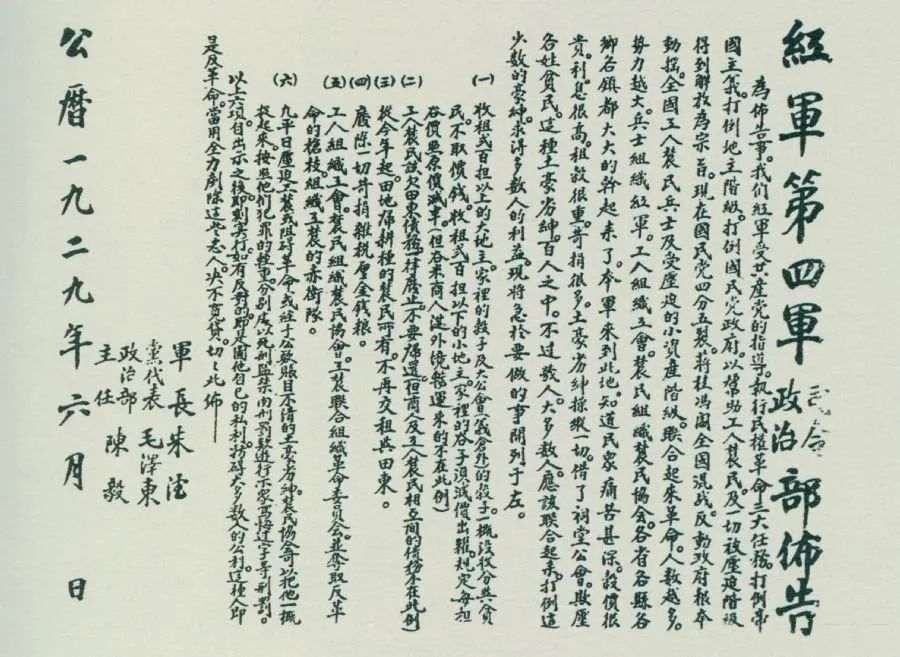 紅軍第四軍司令政治部佈告
為佈告事。我們紅軍受共產党的指導。执行民权革命三大任務。打倒帝
國主義。打倒地主階級。打倒國民党政府。以幫助工人農民及一切被壓迫階級
得到解放為宗旨。現在國民党四分五裂。蔣桂馮閻全國混战。反動政府根本
動搖。全國工人農民兵士及受壓迫的小資產階級。联合起來革命。人數越多。
势力越大。兵士組織紅軍。工人組織工會。農民組織農民協会。各省各縣各
鄉各鎮都大大的幹起来了。本軍來到此地。知道民衆痛苦甚深。穀價很
貴。利息很高。租穀很重。苛捐很多。土豪劣紳操縱一切。借了祠堂公會。欺壓
各姓貧民。這種土豪劣紳。百人之中。不过数人。大多數人。應該联合起来。打倒這
少數的豪紳。求得多數人的利益。現將急於要做的事開列于左。
(一)收租弍百担以上的大地主。家裡的穀子及大公會(義倉外)的穀子。一概沒收分與貧
民。不取價钱。收租弍百担以下的小地主。家裡的谷子須減價出糶。規定每担
谷價照原價減半。(但谷米商人從外境辦運來的不在此例)
(二)工人農民該欠田東債務。一律廢止。不要歸還。(但商人及工人農民相互間的債務不在此例)
(三)從今年起。田地歸耕種的農民所有。不再交租與田東。
(四)廢除一切苛捐雜稅厘金錢粮。
(五)工人組織工會。農民組織農民協會。工農联合組織革命委員会。並奪取反革
命的槍枝。組織工農的赤衛隊。
(六)凡平日壓迫工農或阻碍革命或經手公款賬目不清的土豪劣紳。農民協会可以把他一概
捉起来。按照他們犯罪的輕重。分別處以死刑監禁肉刑罰款遊行示衆写悔过字等刑罰。
以上六項自出示之後。即刻实行。如有反對的。即是圖他自己的私利。妨碍大多數人的公利。這種人即
是反革命。當用全力剷除這些惡人。决不寬貸。切切此佈——
軍長朱德
黨代表毛澤東
政治部主任陳毅
公曆一九二九年六月 日